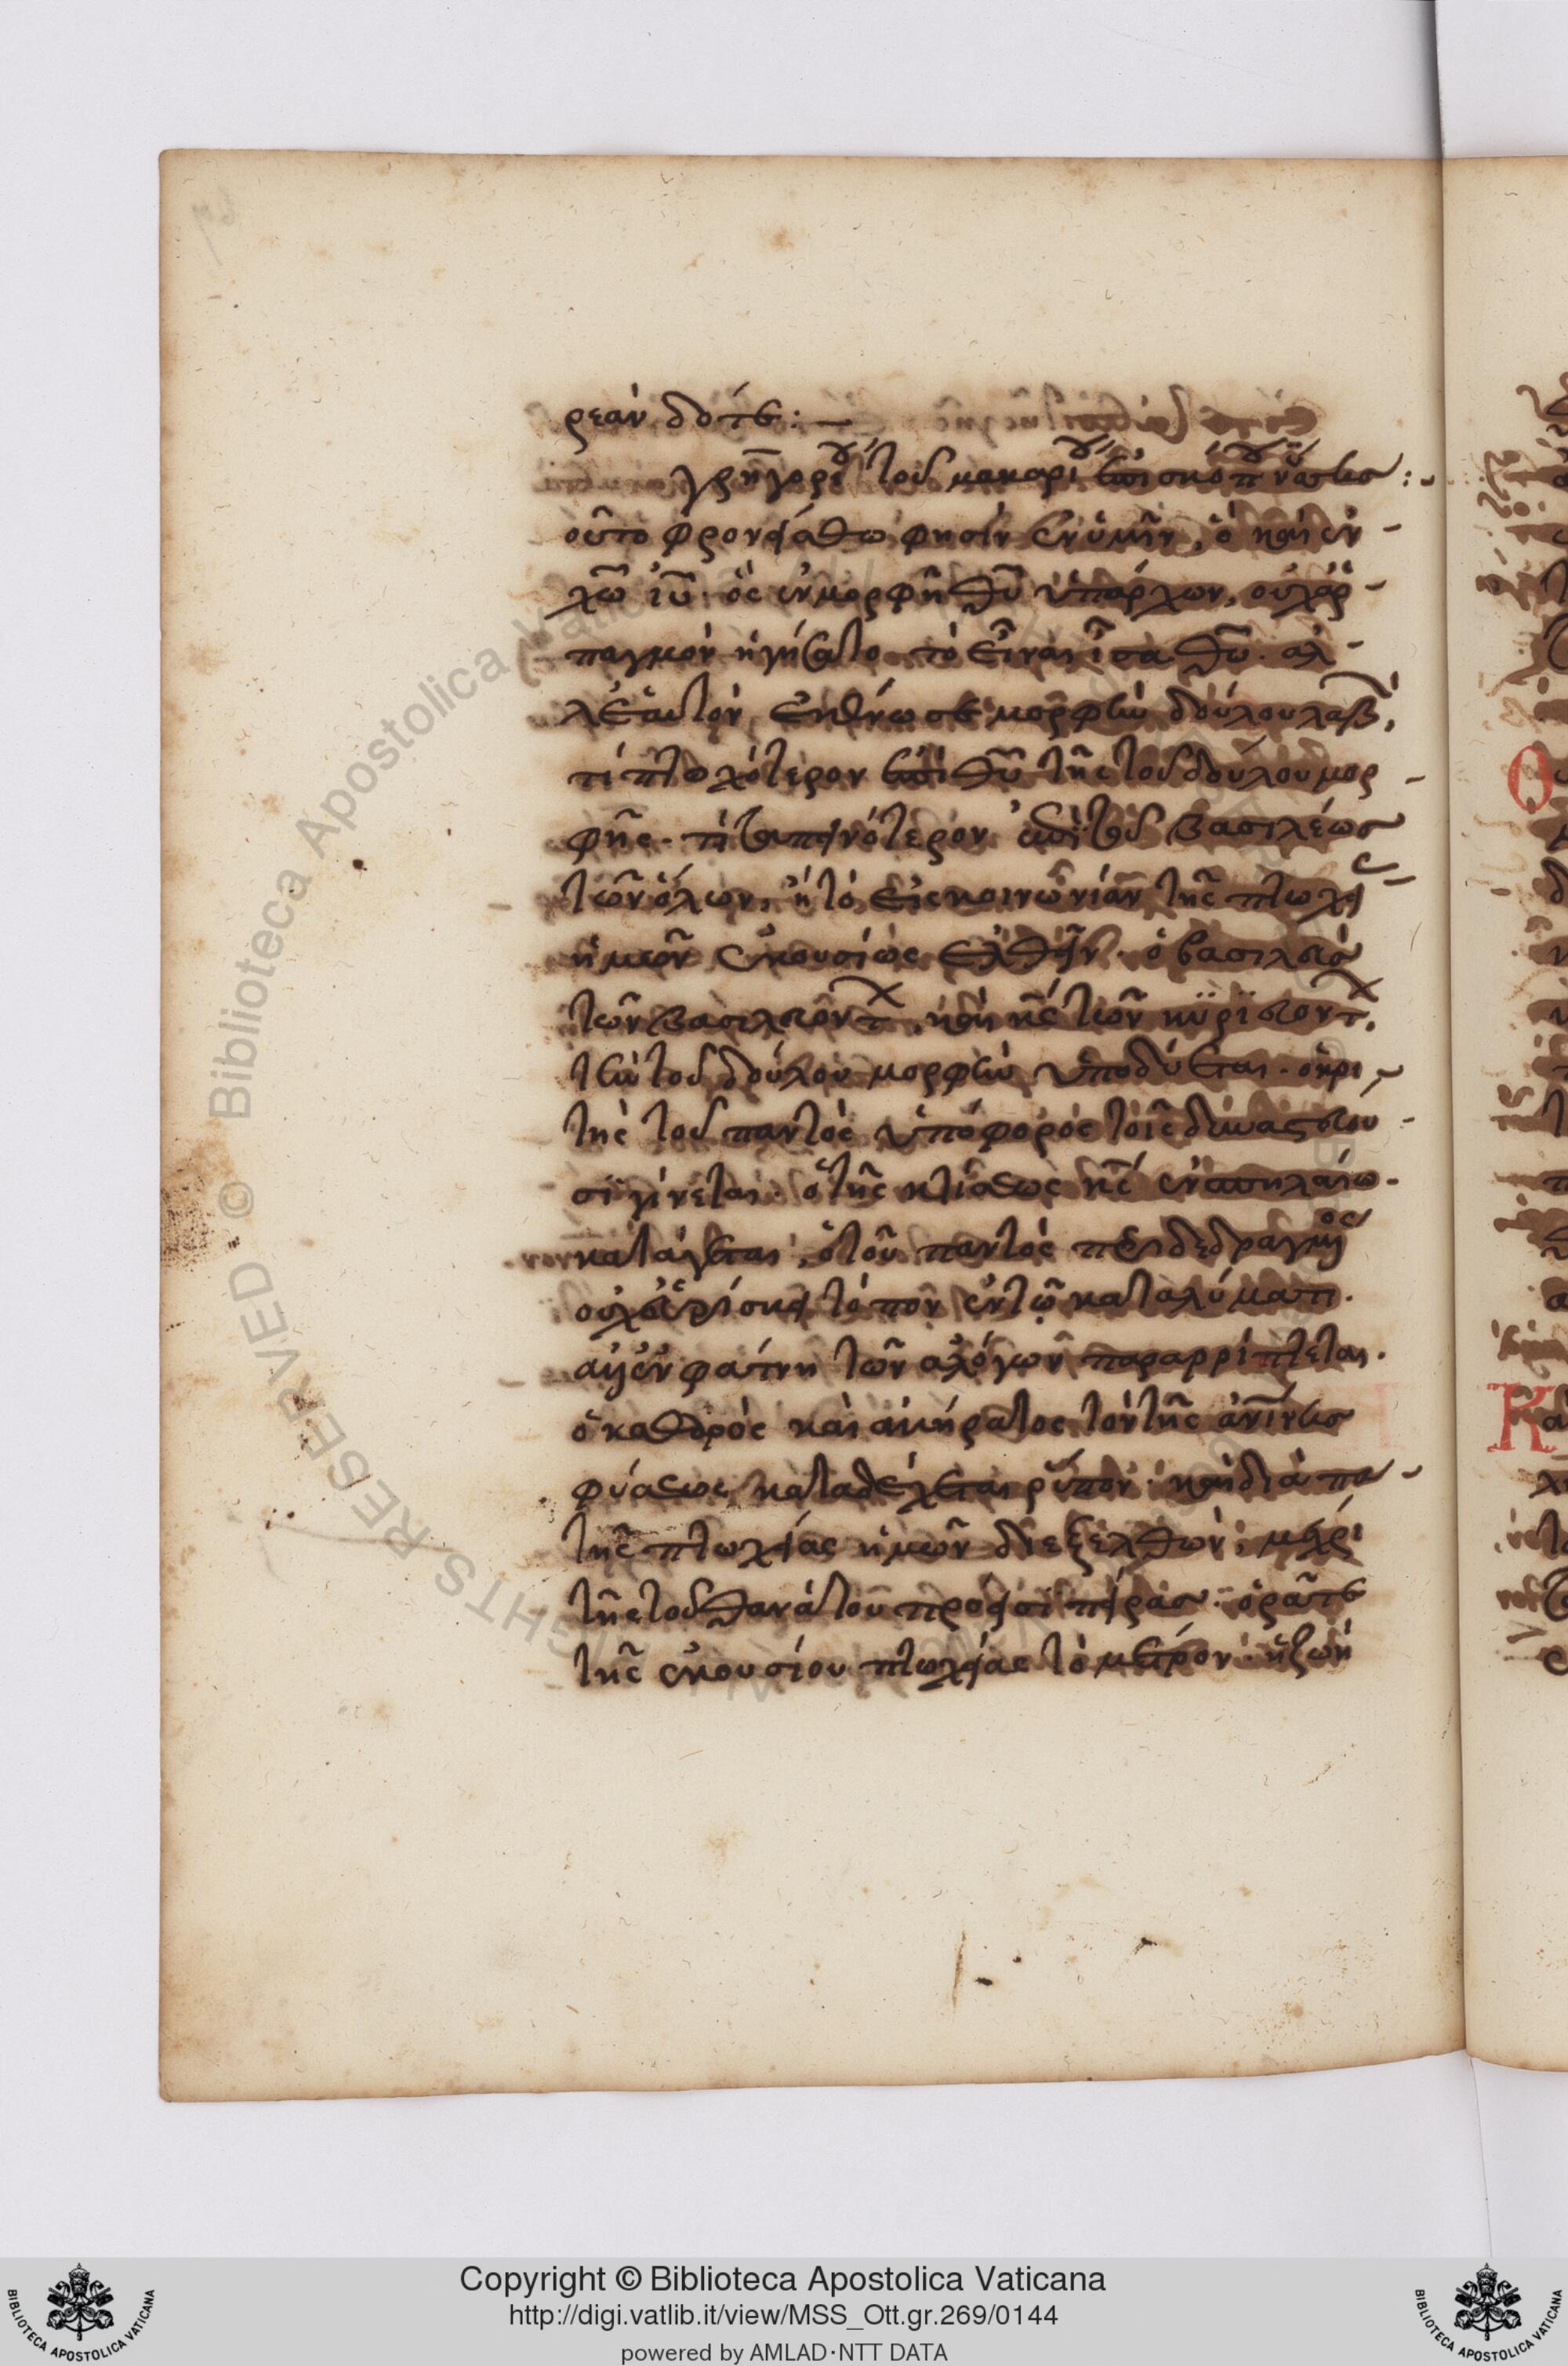 ρεὰν δότε :—
γρηγορίου τοῦ μακαρίου ἐπισκόπου νύσης :
οὗτο φρονείσθω φησὶν ἐν ὑμῖν, ὃ καὶ ἐν
χ̅ω̅ ι̅υ̅. ὃς ἐν μορφῆ θ̅υ̅ ὑπάρχων, οὐχ ἁρ
παγμὸν ἡγήσατο τὸ εἶναι ἶσα θ̅ω̅. ἀλ
λ' ἑαυτὸν ἐκένωσε μορφὴν δούλου λαβών,
τί πτωχότερον ἐπὶ θ̅υ̅ τῆς τοῦ δούλου μορ
φῆς. τί ταπεινότερον ἐπὶ τοῦ βασιλέως
τῶν ὅλων, ἢ τὸ εἰς κοινωνίαν τῆς πτωχείας
ἡμῶν ἑκουσίως ἐλθεῖν. ὁ βασιλεὺς
τῶν βασιλευόντων, καὶ κ̅ς̅ τῶν κυριευόντων,
τὴν τοῦ δούλου μορφὴν ὑποδύεται. ὁ κρι
τὴς τοῦ παντὸς ὑπόφορος τοῖς δυναστεύου
σι γίνεται. ὁ τῆς κτίσεως κ̅ς̅ ἐν σπηλαίω
κατάγεται, ὁ τοῦ παντὸς περιδεδραγμένος
οὐχ εὑρίσκει τόπον ἐν τῷ καταλύματι.
ἀλλ' ἐν φάτνη τῶν ἀλόγων παραρρίπτεται.
ὁ καθαρὸς καὶ ἀκήρατος τὸν τῆς ἀνθρωπίνης
φύσεως καταδέχεται ῥύπον. καὶ διὰ πάσης
τῆς πτωχείας ἡμῶν διεξελθὼν, μέχρι
τῆς τοῦ θανάτου πρόεισι πείρας. ὁρᾶτε
τῆς ἑκουσίου πτωχείας τὸ μέτρον. ἡ ζωὴ
Copyright © Biblioteca Apostolica Vaticana
http://digi.vatlib.it/view/MSS_Ott.gr.269/0144
powered by AMLAD·NTT DATA